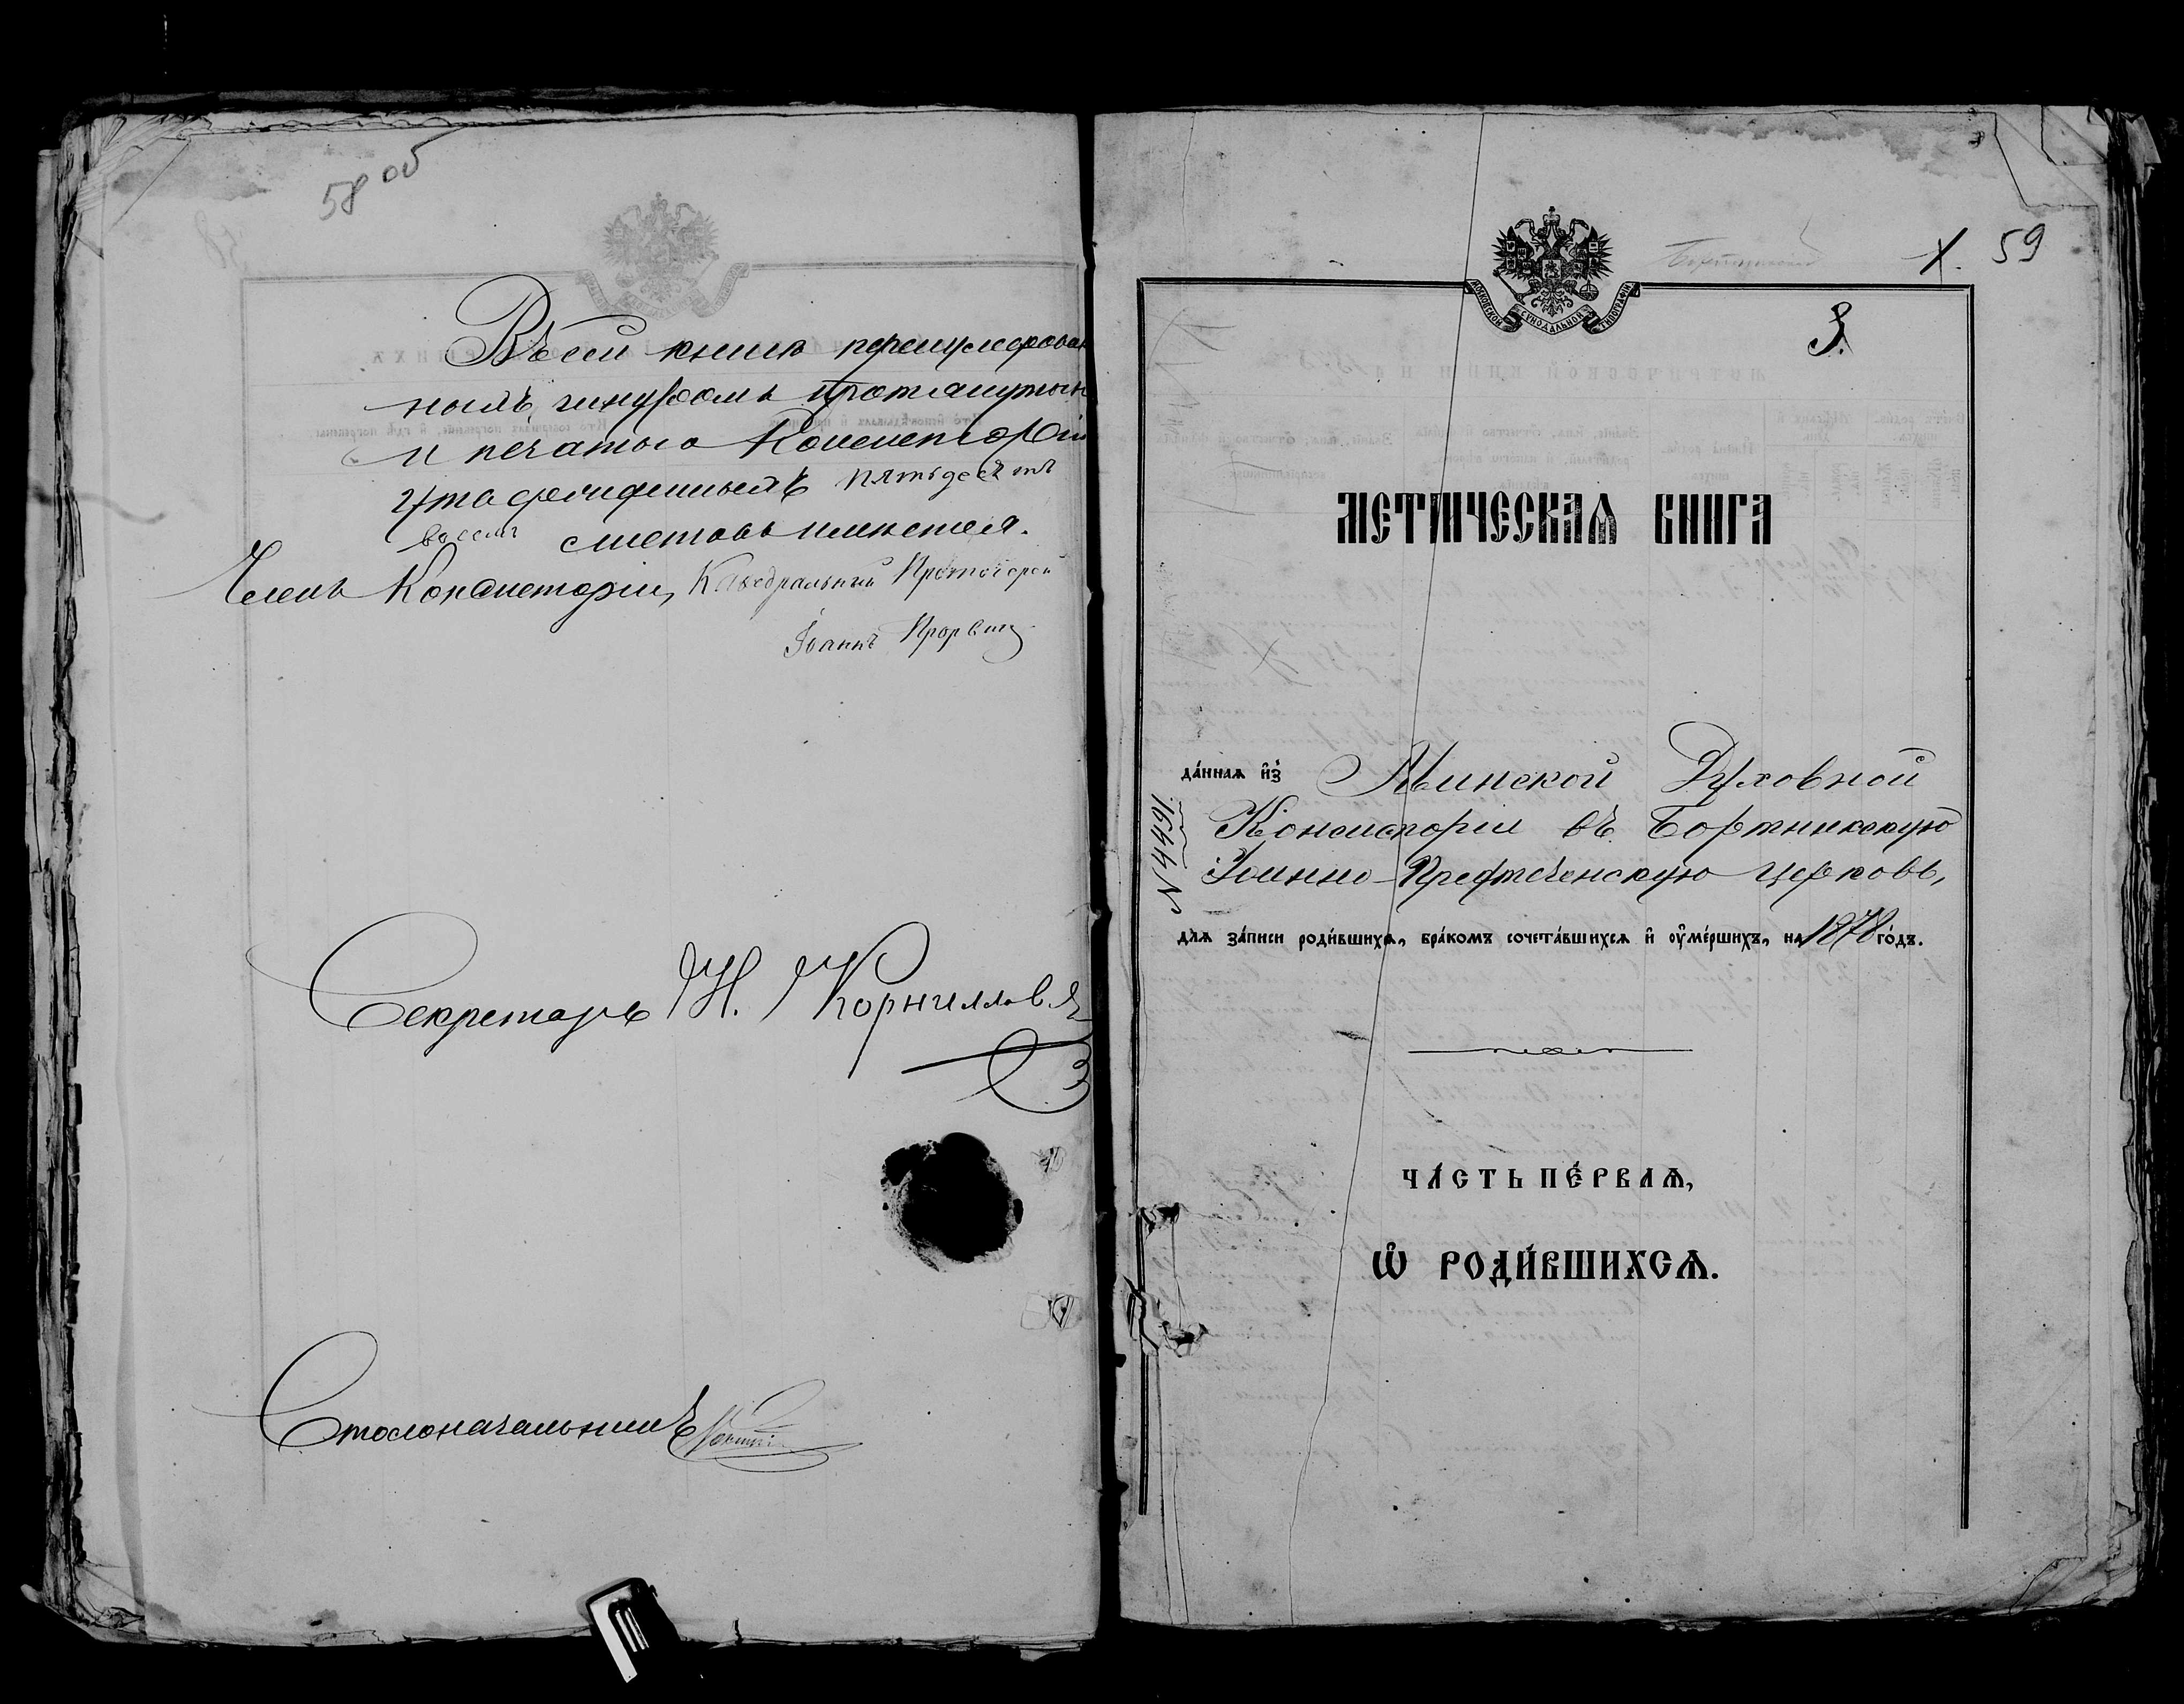 58 об
Въ сей книгѣ перенумерован
нымъ, шнуромъ протянутых
и печатью Консисторіи
утвержденныхъ пятьдесятъ
восемь листовъ имѣется.
Членъ Консисторіи, Каѳедральный Протоіерей
Іоаннъ
Секретарь Н. Корниллов
Столоначальникъ
X. 59
МОСКОВСКОЙ СѴНОДАЛЬНОЙ ТИПОГРАФІИ
3.
МЕТРИЧЕСКАѦ КНИГА
да́ннаѧ и҆з̾ Минской Духовной
Консисторіи въ Бортникскую
Іоанно-Предтеченскую церковь,
N 4491.
длѧ за́писи роди́вшихсѧ, бра́комъ сочета́вшихсѧ и҆ ᲂу҆ме́ршихъ, на 1878 го́дъ.
ЧА́СТЬ ПЕ́РВАѦ,
Ѽ РОДИ́ВШИХСѦ.